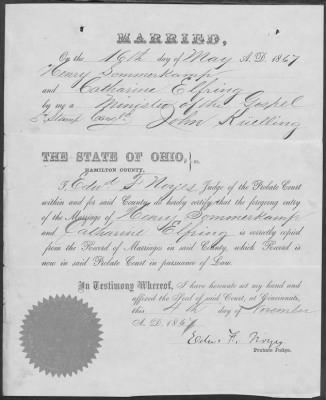 MARRIED,
On the 16th day of May A. D. 1867
Henry Sommerkamp
and Catharine Elfring
by me a Minister of the Gospel
John Kuelling
THE STATE OF OHIO, } ss.
HAMILTON COUNTY,
I, Edwd F Noyes Judge of the Probate Court
within and for said County do hereby certify that the forgoing entry
of the Marriage of Henry Sommerkamp
and Catharine Elfring is correctly copied
from the Record of Marriages in said County, which Record is
now in said Probate Court in pursuance of Law.
In Testimony Whereof, I have hereunto set my hand and
affixed the Seal of said Court, at Cincinnati,
this 4th day of November
A. D. 1867
Edw. F. Noyes
Probate Judge.